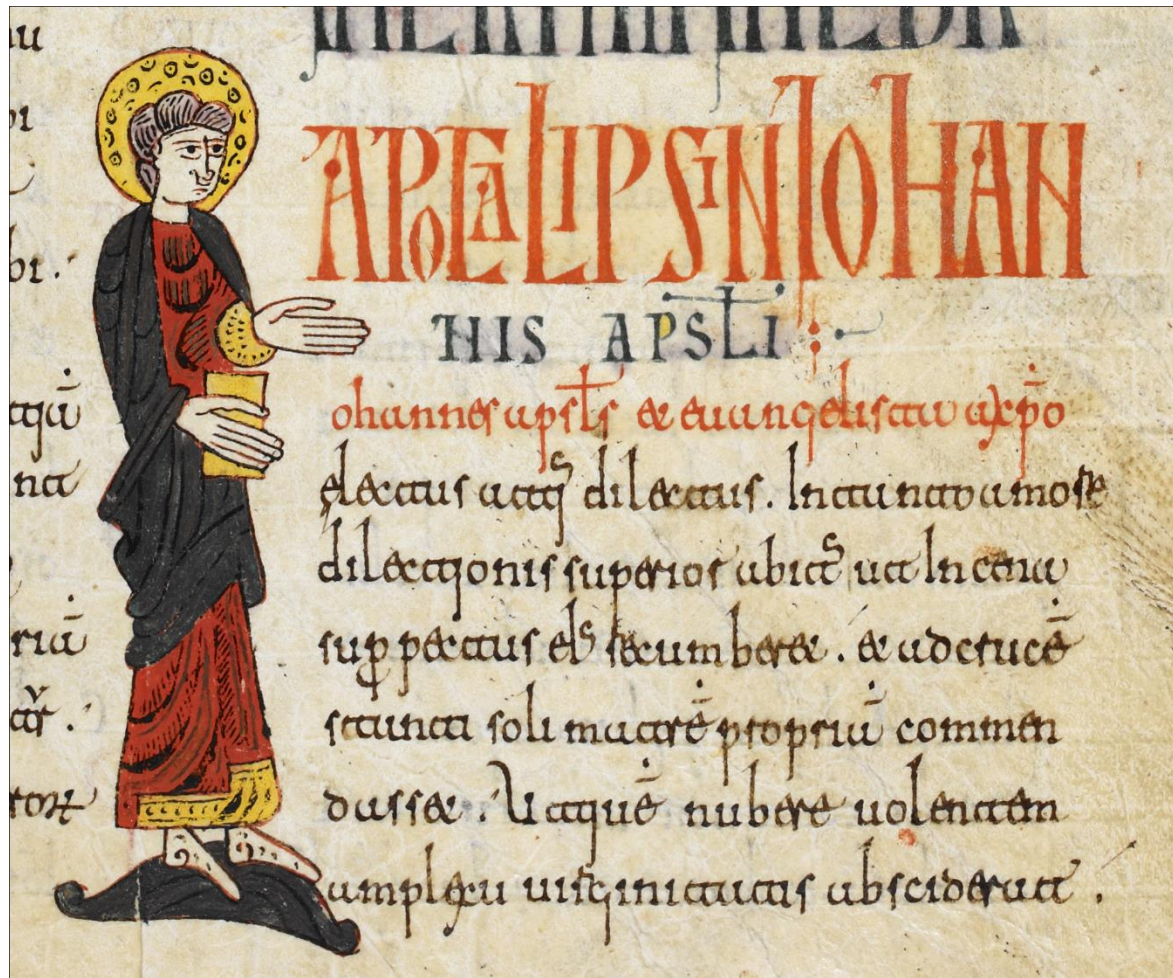 APOCALIPSIN IOHAN
NIS APSTLI
ohannes apstls et euangelista a xpo
electus atq dilectus. In tanto amore
dilectionis superior abits ut In cena
supr pectus eis recumberet. et ad crucē
stanti soli matrē propriā commen
dasset. Ut quē nubere uolentem
amplexu uirginitatis absciderat.